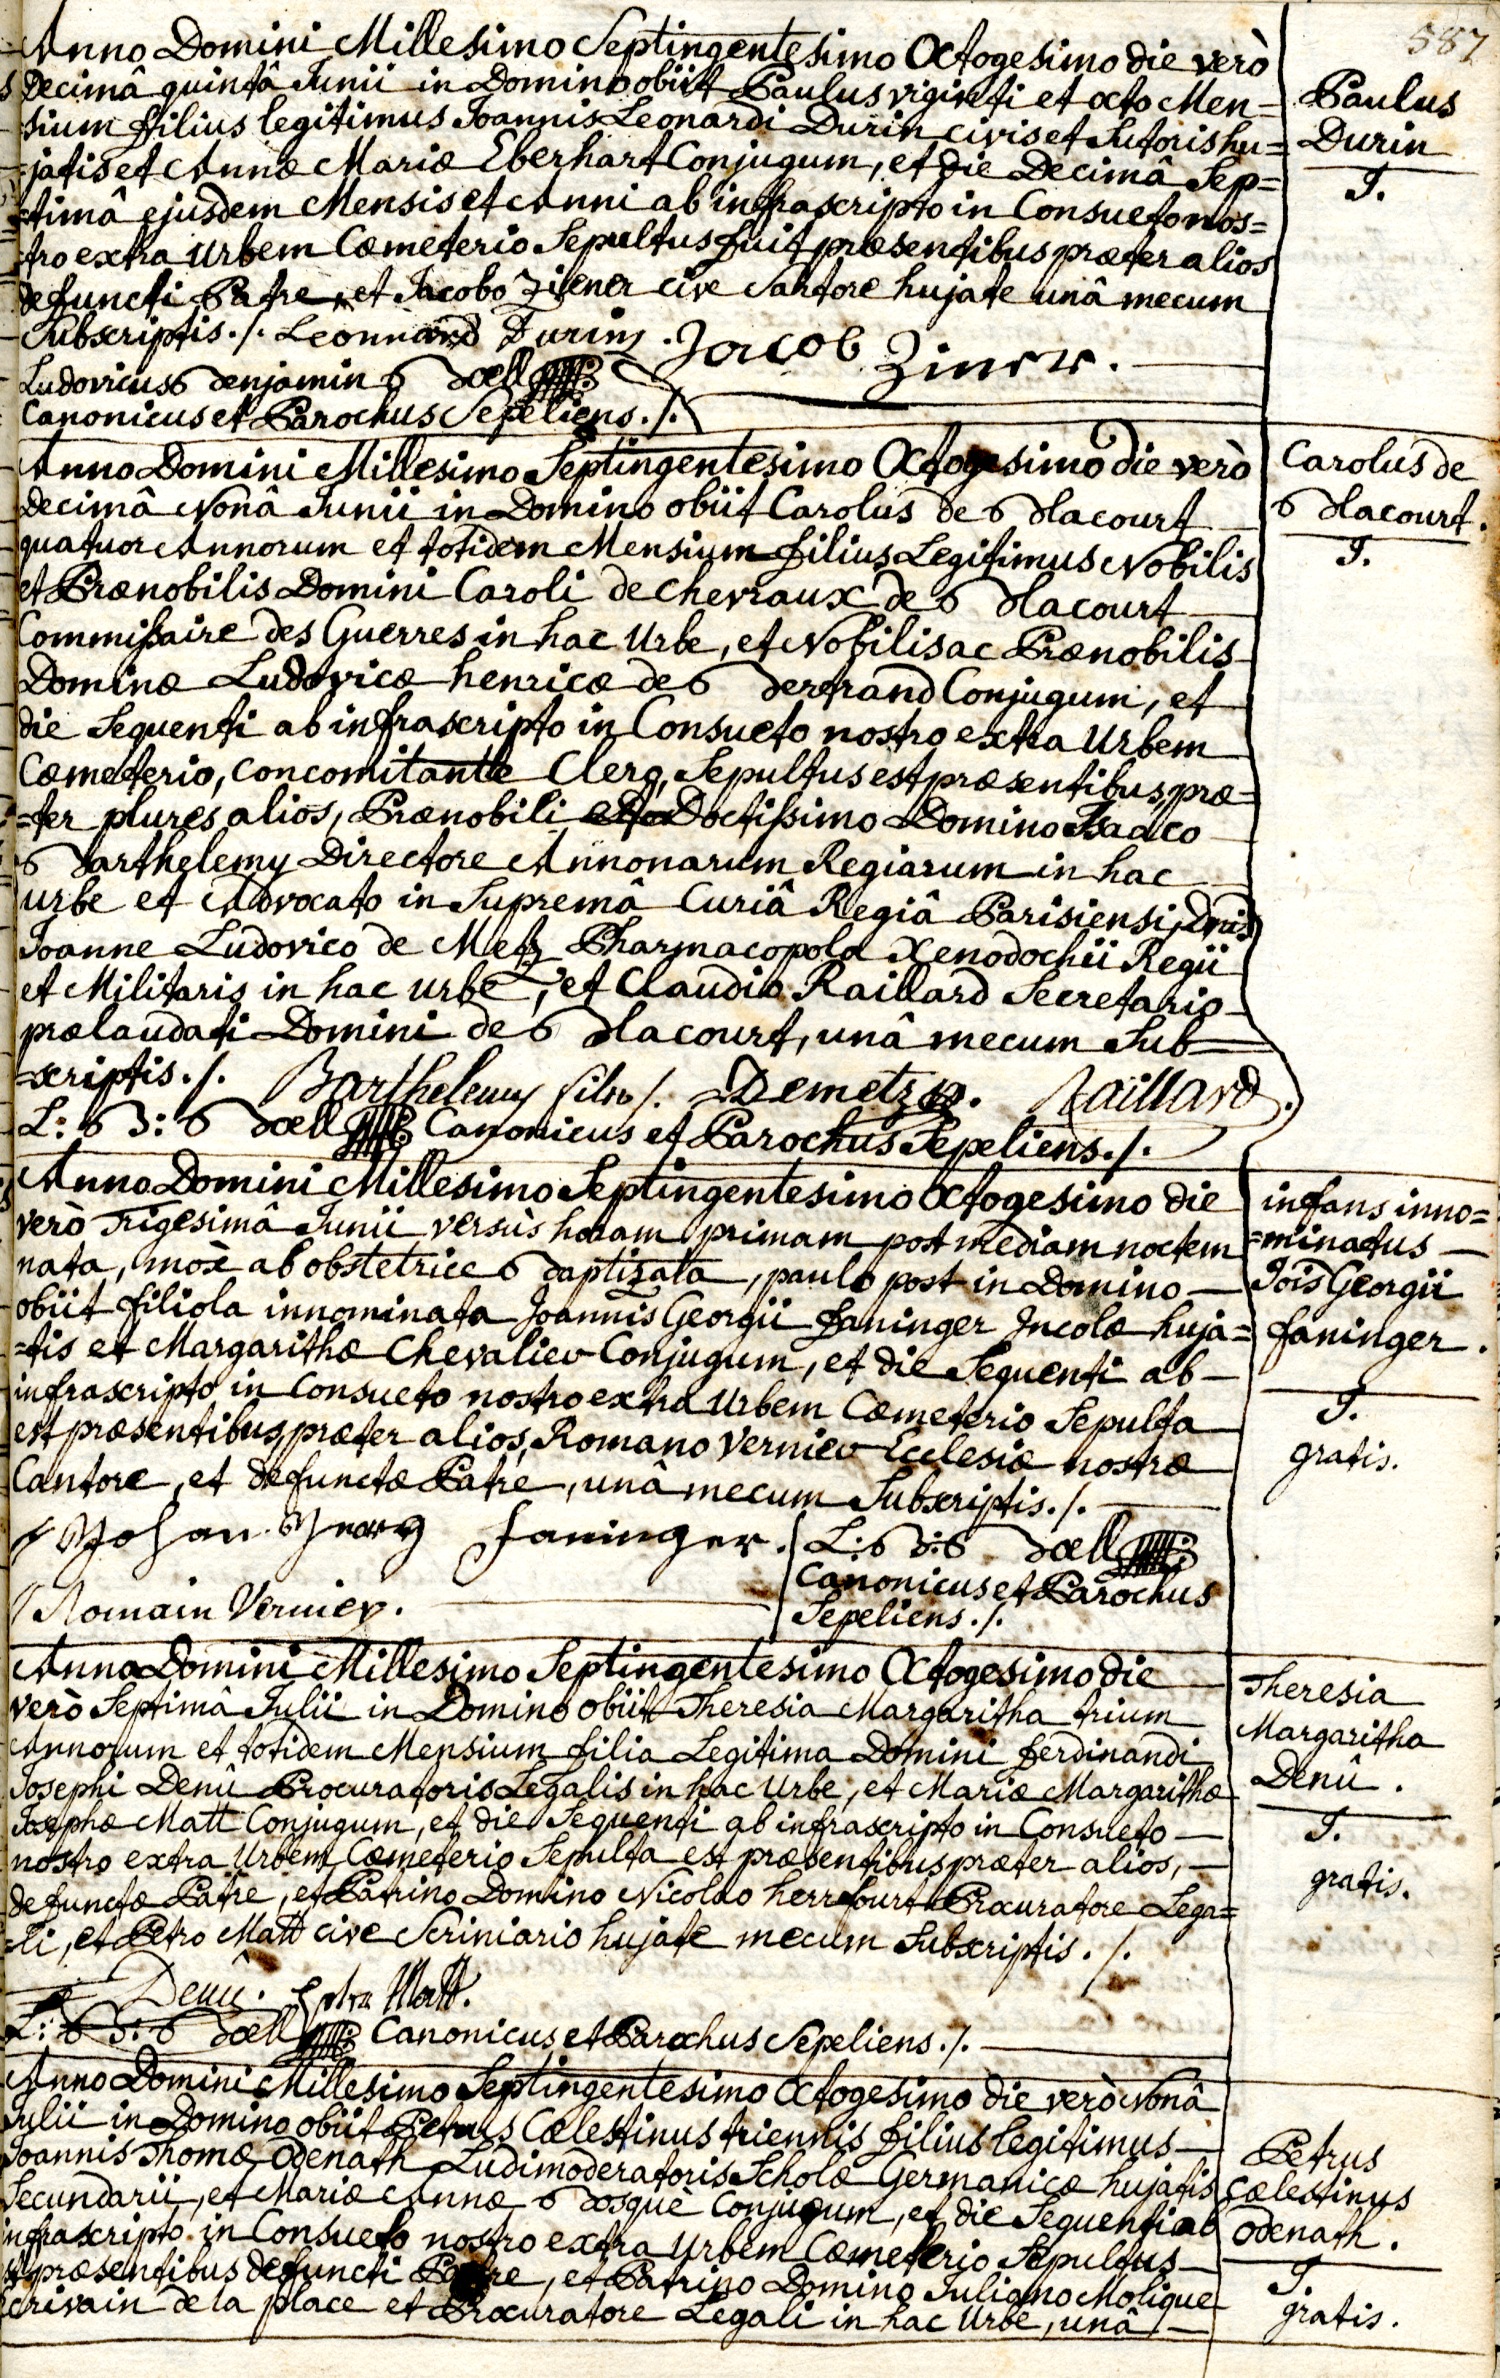 587
Anno Domini Millesimo Septingentesimo Octogesimo die verò
Decimâ quintâ Junii in Domino obiit Paulus viginti et octo Men-
=sium filius legitimus Joannis Leonardi Durin civis et Sutoris hu=
=jatis et Annæ Mariæ Eberhart Conjugum, et die Decimâ Sep=
=timâ ejusdem Mensis et Anni ab infrascripto in Consueto nos=
=tro extra Urbem Cœmeterio Sepultus fuit præsentibus præter alios
defuncti Patre, et Jacobo Ziener cive Sartore hujate unâ mecum
Subscriptis ./. Leonnard During. Jacob Ziner.
Ludovicus Benjamin Boell
Canonicus et Parochus Sepeliens ./.
Paulus
Durin
J.
Anno Domini Millesimo Septingentesimo Octogesimo die verò
Decimâ Nonâ Junii in Domino obiit Carolus de Blacourt
quatuor Annorum et totidem Mensium filius Legitimus Nobilis
et Prænobilis Domini Caroli de Chevraux de Blacourt
Commissaire des Guerres in hac Urbe, et Nobilis ac Prænobilis
Dominæ Ludovicæ henricæ de Bertrand Conjugum, et
die Sequenti ab infrascripto in Consueto nostro extra Urbem
Cœmeterio, concomitante Clero, Sepultus est præsentibus, præ=
=ter plures alios, Prænobili Doctissimo Domino Isaaco
Barthelemy Directore Annonarum Regiarum in hac
urbe et Advocato in Supremâ Curiâ Regiâ Parisiensi, Dnis
Joanne Ludovico de Metz Pharmacopola Xenodochii Regii
et Militaris in hac urbe, et Claudio Raillard Secretario
prælaudati Domini de Blacourt, unâ mecum Sub=
=scriptis ./. Barthelemy fils ./. Demetz. Raillard.
L: B: Boell Canonicus et Parochus Sepeliens ./.
Carolus de
Blacourt.
J.
Anno Domini Millesimo Septingentesimo Octogesimo die
verò Trigesimâ Junii versùs horam primam post mediam noctem
nata, mox ab obstetrice baptizata, paulo post in Domino
obiit filiola innominata Joannis Georgii Faninger Incolæ huja=
=tis et Margarithæ Chevalier Conjugum, et die Sequenti ab
infrascripto in Consueto nostro extra Urbem Cœmeterio Sepulta
est præsentibus, præter alios, Romano Vernier Ecclesiæ nostræ
Cantore, et defunctæ Patre, unâ mecum Subscriptis ./.
Johan Georg Faninger. L: B: Boell
Canonicus et Parochus
Romain Vernier. Sepeliens ./.
infans inno=
=minatus
Jois Georgii
faninger.
J.
gratis.
Anno Domini Millesimo Septingentesimo Octogesimo die
verò Septimâ Julii in Domino obiit Theresia Margaritha trium
Annorum et totidem Mensium filia Legitima Domini Ferdinandi
Josephi Denû Procuratoris Legalis in hac Urbe, et Mariæ Margarithæ
Josephæ Matt Conjugum, et die Sequenti ab infrascripto in Consueto
nostro extra Urbem Cœmeterio Sepulta est præsentibus præter alios,
defunctæ Patre, et Patrino Domino Nicolao herrburt Procuratore Lega=
=li, et Petro Matt cive Scriniario hujate mecum Subscriptis ./.
Denû. Matt.
L: B: Boell Canonicus et Parochus Sepeliens ./.
Theresia
Margaritha
Denû.
J.
gratis.
Anno Domini Millesimo Septingentesimo Octogesimo die verò Nonâ
Julii in Domino obiit Petrus Cœlestinus triennis filius legitimus
Joannis Thomæ Odenath Ludimoderatoris Scholæ Germanicæ hujatis
Secundarii, et Mariæ Annæ Bosquè Conjugum, et die Sequenti ab
infrascripto in Consueto nostro extra Urbem Cœmeterio Sepultus
est præsentibus defuncti Patre, et Patrino Domino Juliano Molique
Ecrivain de la place et Procuratore Legali in hac Urbe, unâ
Petrus
Cœlestinus
Odenath.
J.
gratis.